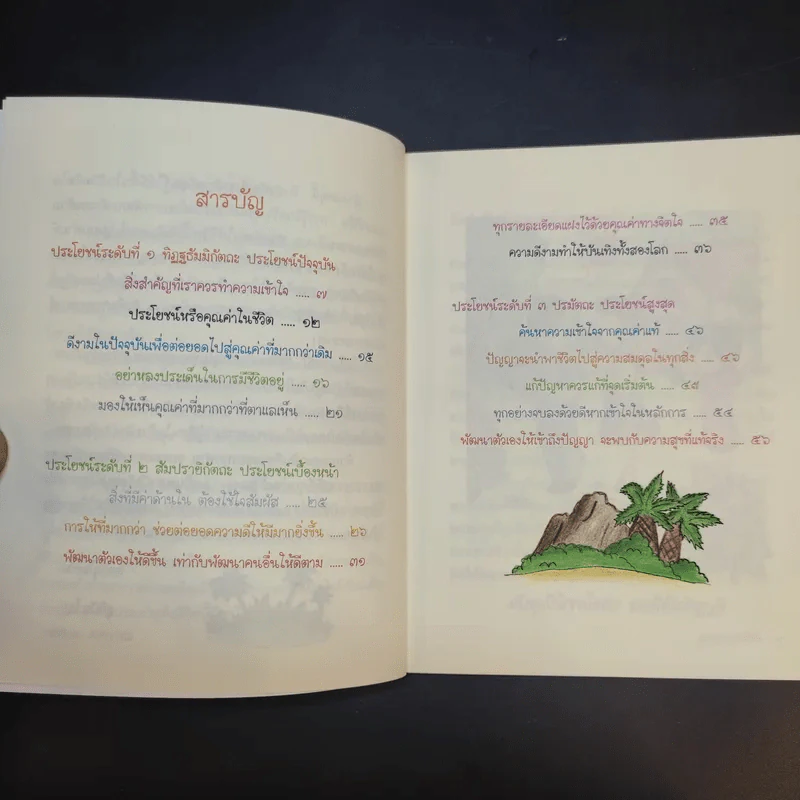 สารบัญ
ประโยชน์ระดับที่ ๑ ทิฏฐธัมมิกัตถะ ประโยชน์ปัจจุบัน
สิ่งสำคัญที่เราควรทำความเข้าใจ ..... ๗
ประโยชน์หรือคุณค่าในชีวิต ..... ๑๒
ดีงามในปัจจุบันเพื่อต่อยอดไปสู่คุณค่าที่มากกว่าเดิม ..... ๑๕
อย่าหลงประเด็นในการมีชีวิตอยู่ ..... ๑๖
มองให้เห็นคุณค่าที่มากกว่าที่ตาแลเห็น ..... ๒๑
ประโยชน์ระดับที่ ๒ สัมปรายิกัตถะ ประโยชน์เบื้องหน้า
สิ่งที่มีค่าด้านใน ต้องใช้ใจสัมผัส ..... ๒๕
การให้ที่มากกว่า ช่วยต่อยอดความดีให้มีมากยิ่งขึ้น ..... ๒๖
พัฒนาตัวเองให้ดีขึ้น เท่ากับพัฒนาคนอื่นให้ดีตาม ..... ๓๑
ทุกรายละเอียดแฝงไว้ด้วยคุณค่าทางจิตใจ ..... ๓๕
ความดีงามทำให้บันเทิงทั้งสองโลก ..... ๓๖
ประโยชน์ระดับที่ ๓ ปรมัตถะ ประโยชน์สูงสุด
ค้นหาความเข้าใจจากคุณค่าแท้ ..... ๔๖
ปัญญาจะนำพาชีวิตไปสู่ความสมดุลในทุกสิ่ง ..... ๔๖
แก้ปัญหาควรแก้ที่จุดเริ่มต้น ..... ๔๙
ทุกอย่างจบลงด้วยดีหากเข้าใจในหลักการ ..... ๕๔
พัฒนาตัวเองให้เข้าถึงปัญญา จะพบกับความสุขที่แท้จริง ..... ๕๖